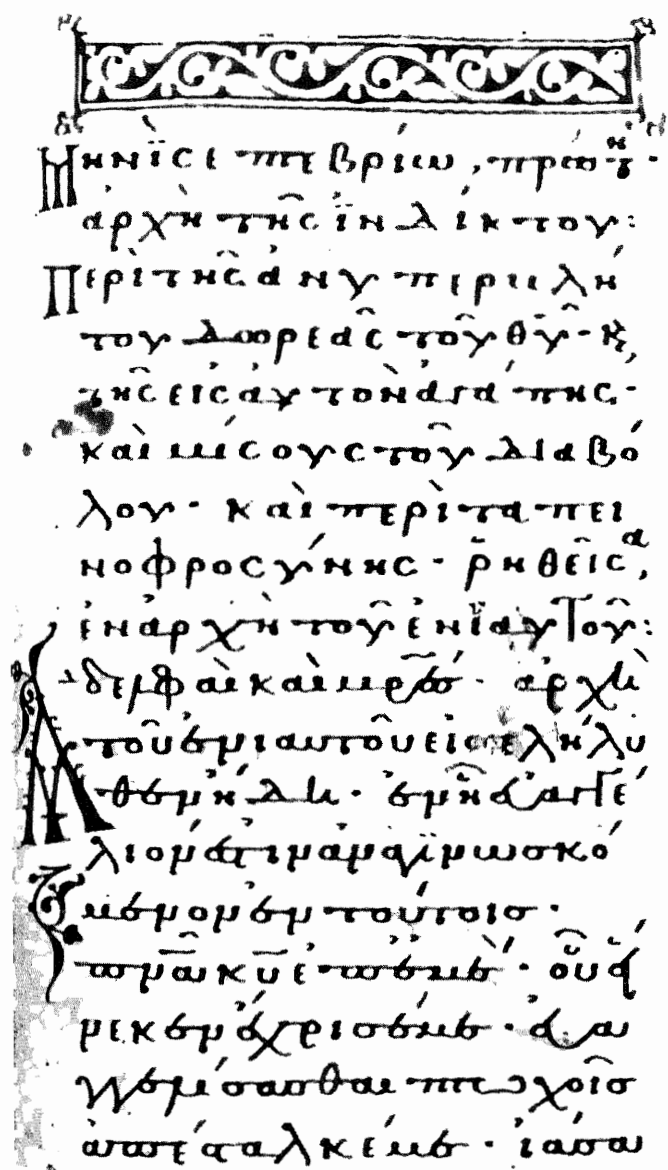 Μηνὶ σεπτεβρίω, πρώτη·
ἀρχὴ τῆς ἰνδίκτου:
Περὶ τῆς ἀνυπερβλή
του δωρεᾶς τοῦ θυ̅· κ
τῆς εἰς αὐτὸν ἀγάπης·
καὶ μίσους τοῦ διαβό
λου· καὶ περὶ ταπει
νοφροσύνης· ῥηθεῖσα,
ἐν ἀρχῆ τοῦ ἐνϊαυτοῦ:
Ἀδελφαὶ καὶ μρ̅ες· ἀρχὴ
τοῦ ἐνιαυτοῦ εἰσελήλυ
θεν ἤδη· ἐν ἧ εὐαγγέ
λιον ἐστιν ἀναγϊνωσκό
μενον ἐν τούτοισ·
πνα̅ κυ̅ ἐπ' ἐμὲ· οὗ εἵ
νεκεν ἔχρισέ με· εὐα
γγελίσασθαι πτωχοῖσ
ἀπέσταλκέ με· ἰάσα